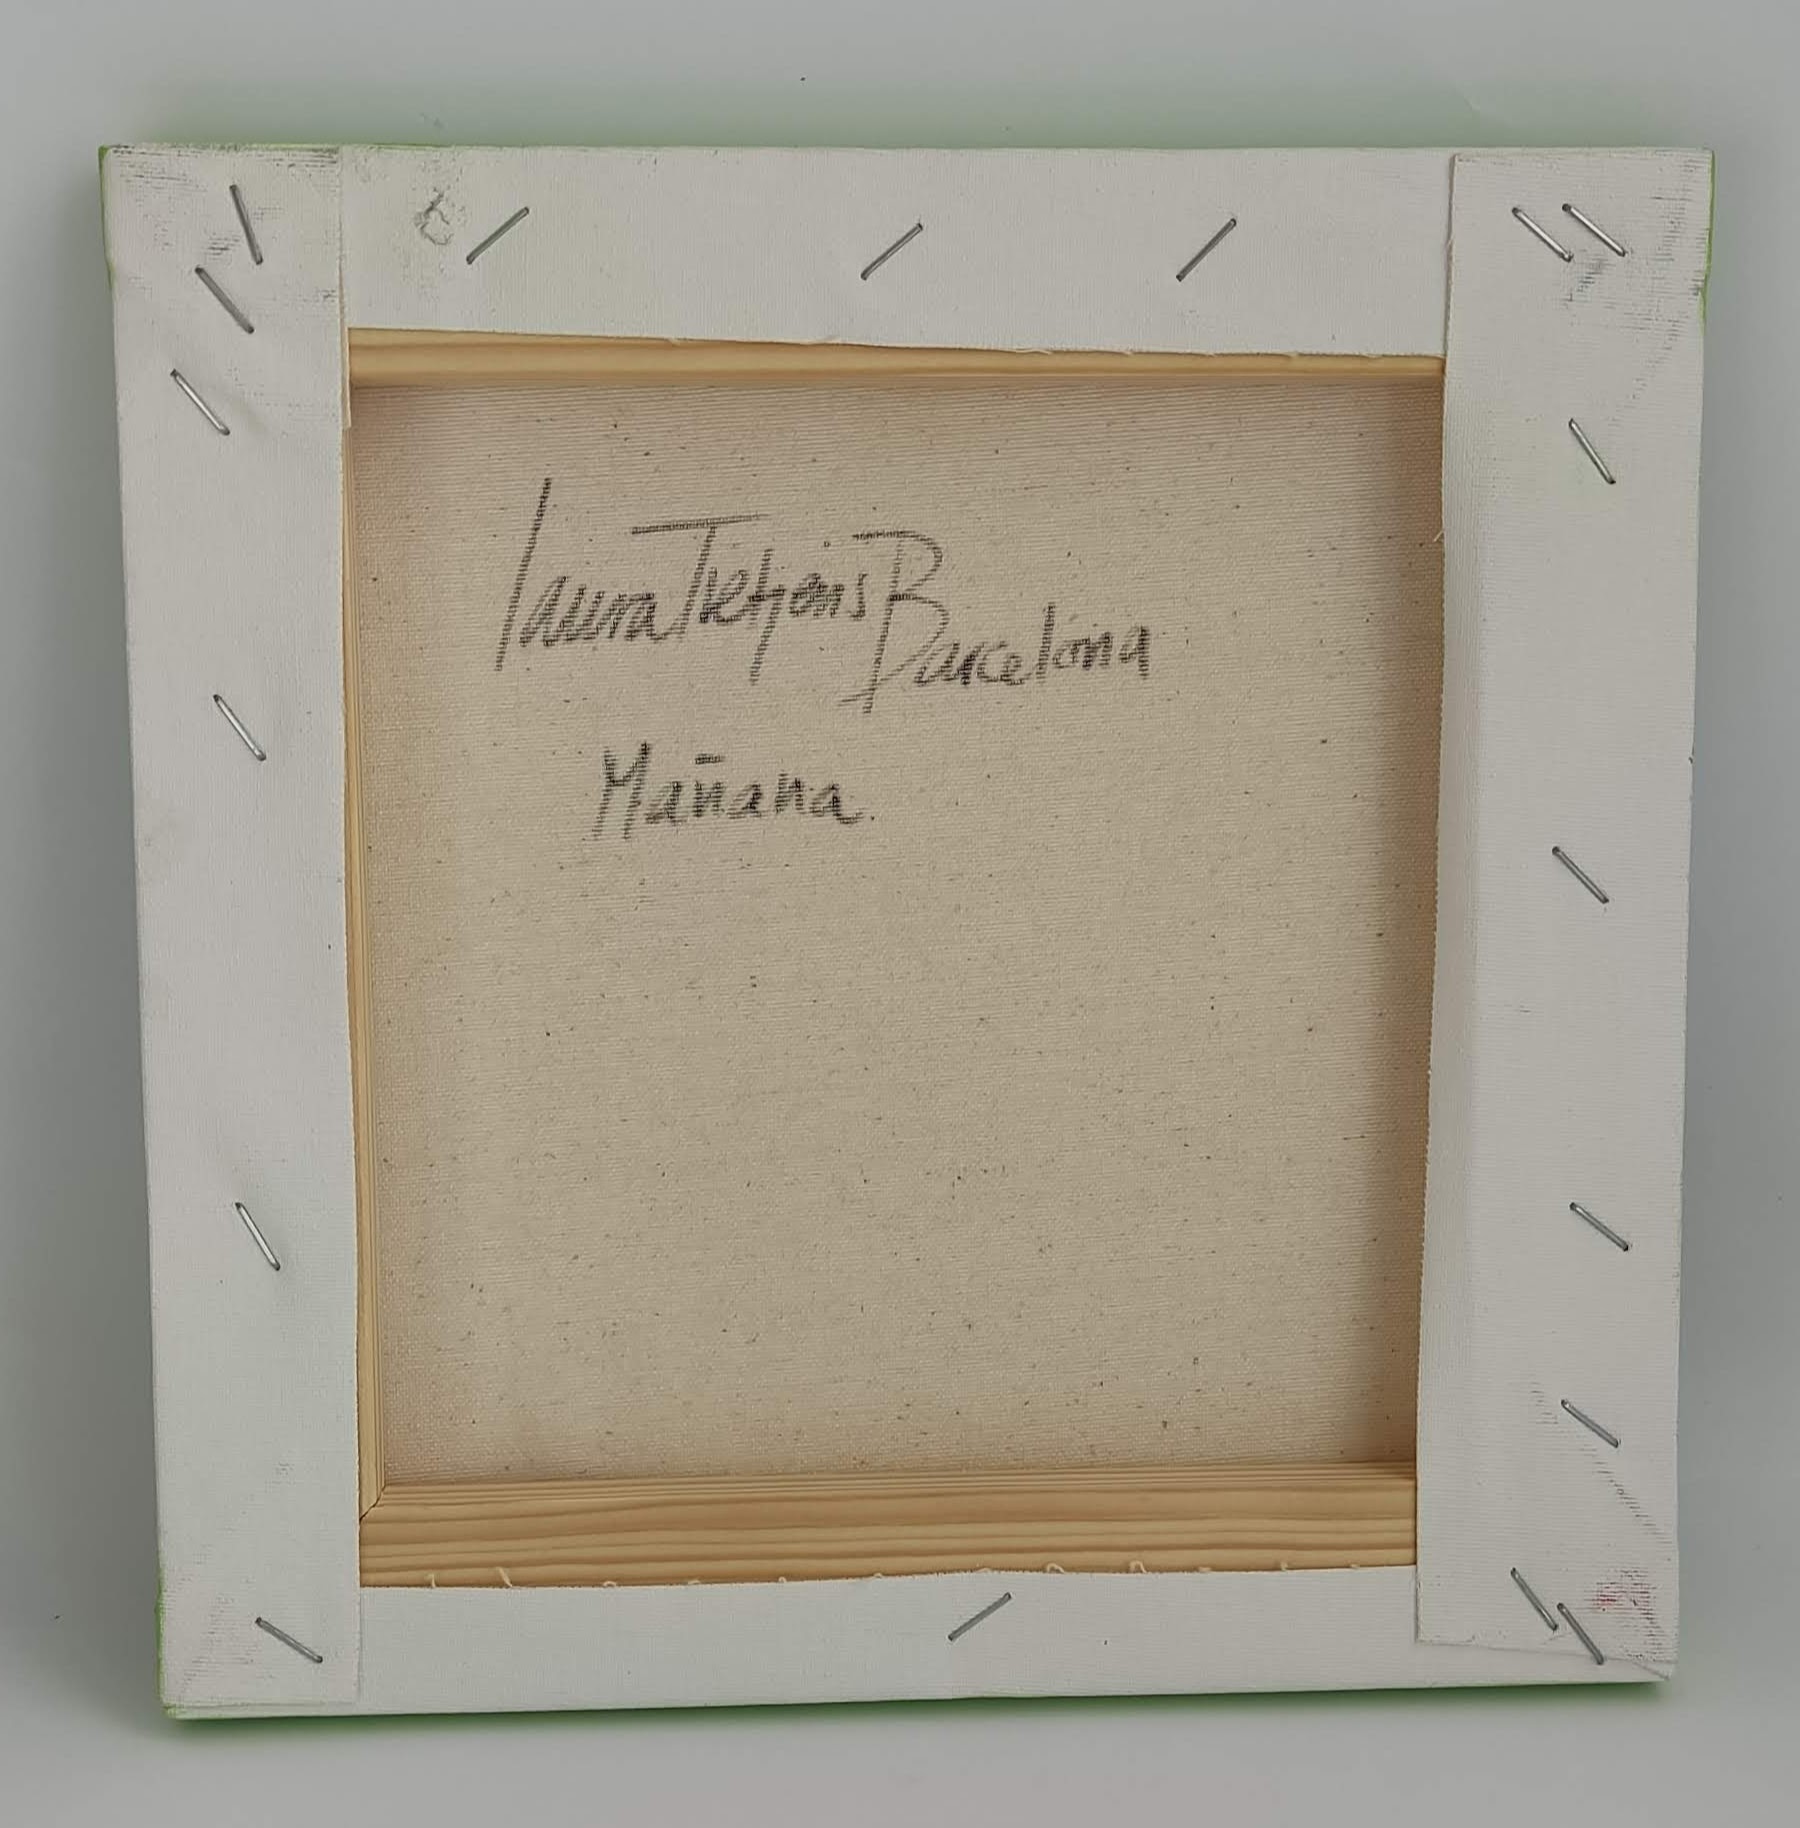 Laura Tietjens Barcelona
Mañana.